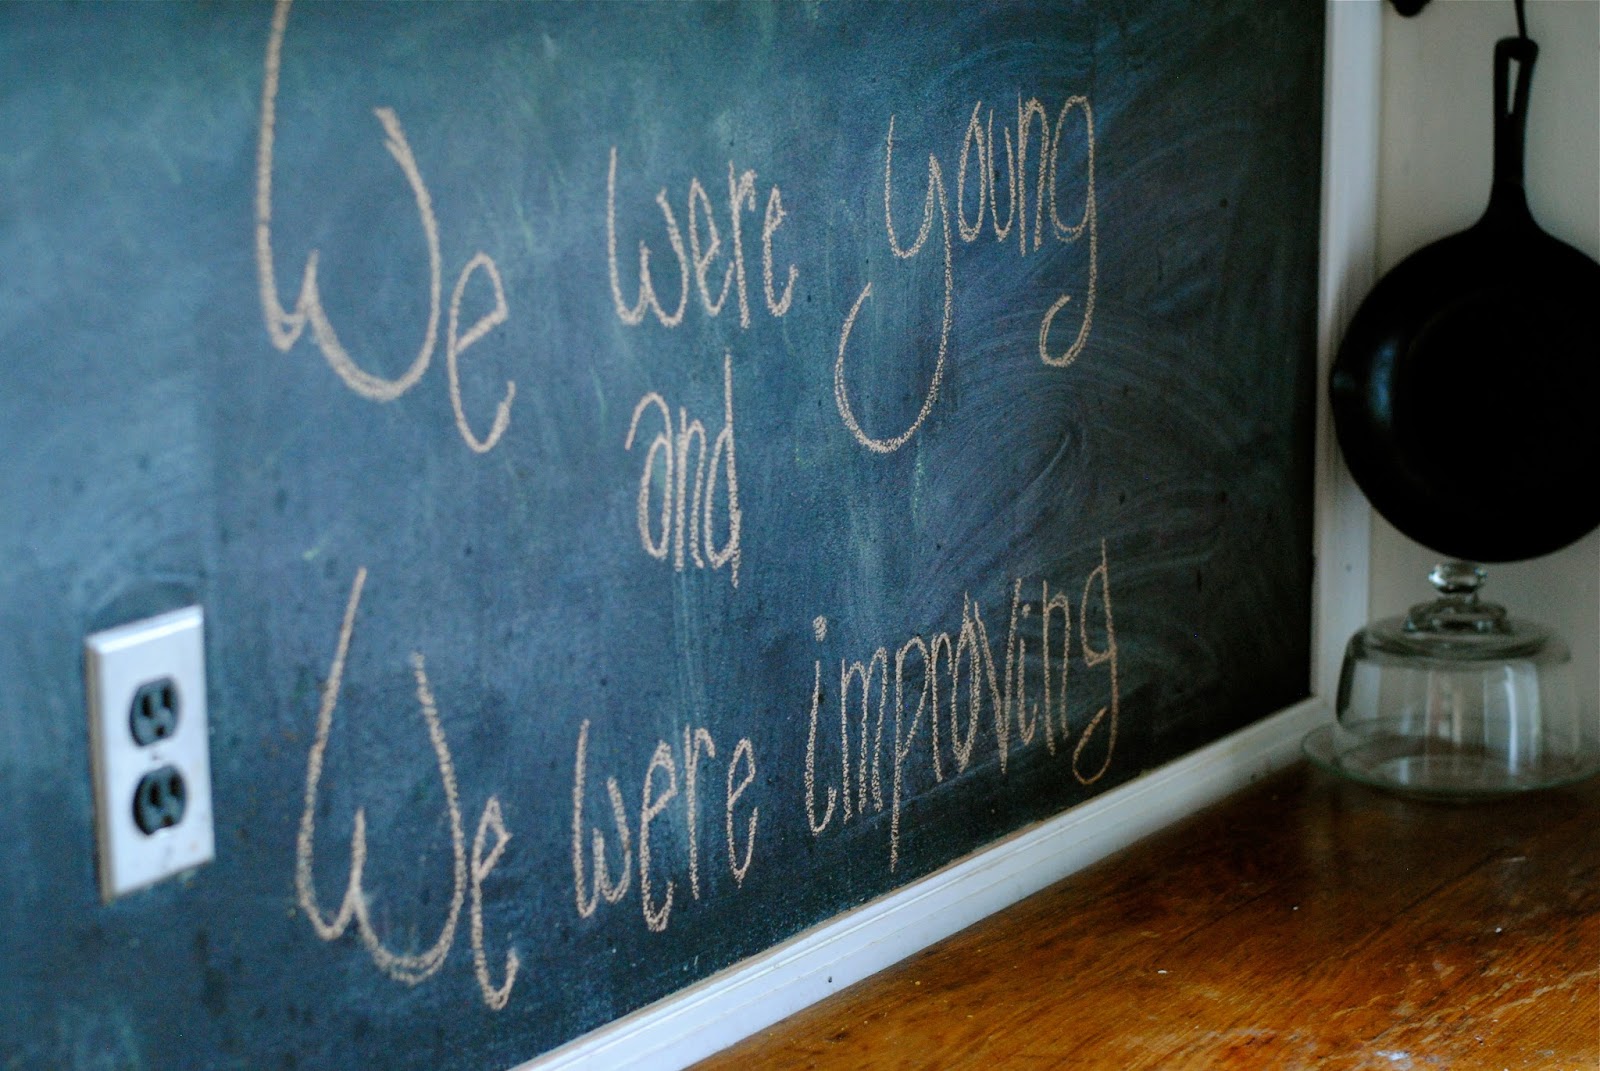 We were young
and
We were improving